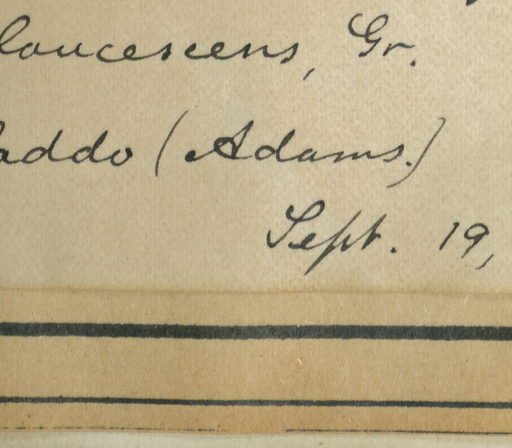 loucescens, Gr.
addo (Adams.)
Sept. 19,